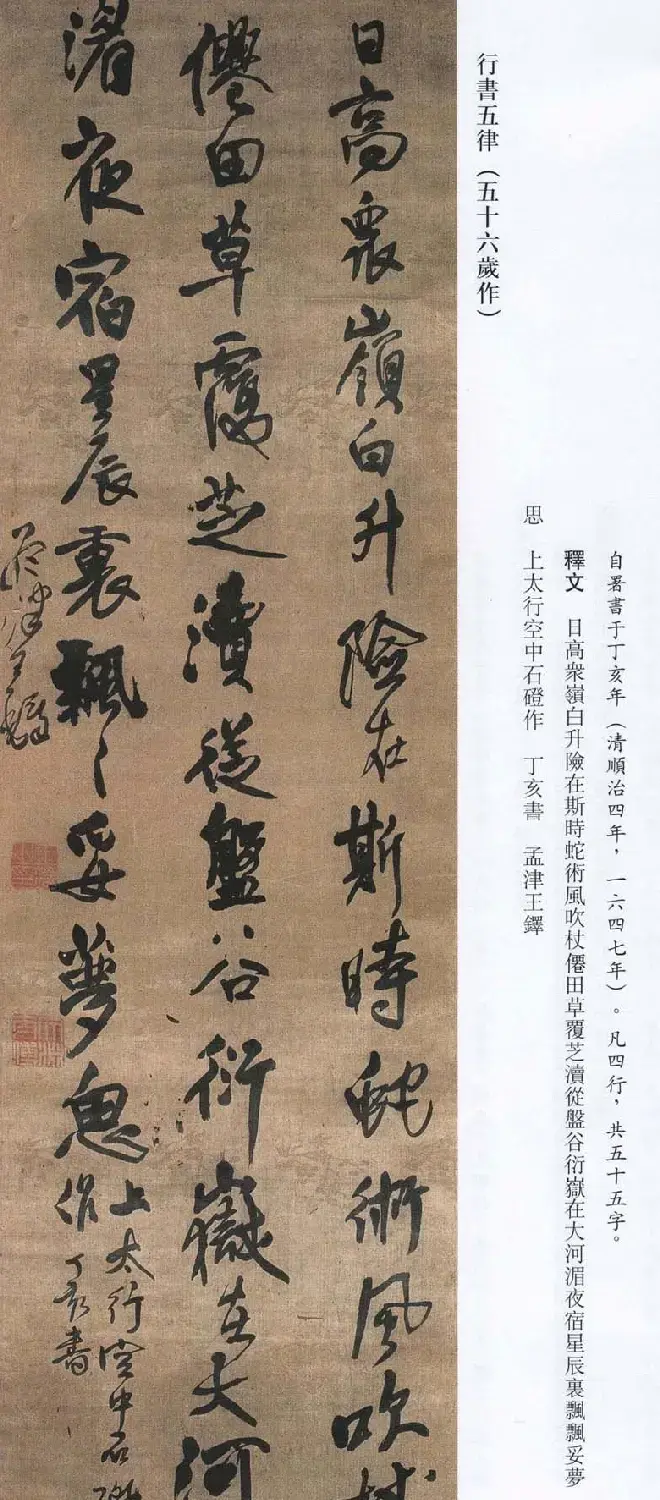 自署書于丁亥年（清順治四年，一六四七年）。凡四行，共五十五字。
釋文　日高衆嶺白升險在斯時蛇術風吹杖僊田草覆芝瀆從盤谷衍嶽在大河湄夜宿星辰裏飄飄妥夢
思　上太行空中石磴作　丁亥書　孟津王鐸
行書五律（五十六歲作）
日高衆嶺白升險在斯時蛇術風吹杖
僊田草覆芝瀆從盤谷衍嶽在大河
湄夜宿星辰裏飄〻妥夢思
上太行空中石磴
作丁亥書
孟津王鐸